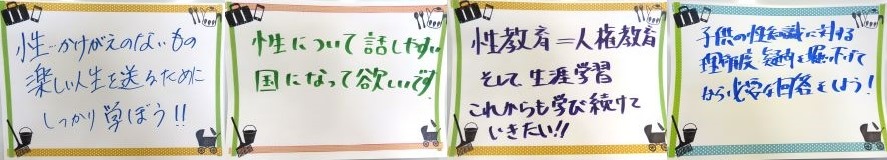 性…かけがえのないもの
楽しい人生を送るために
しっかり学ぼう!!
性について話しやすい
国になって欲しいです
性教育=人権教育
そして生涯学習
これからも学び続けて
いきたい!!
子供の性知識に対する
理解度、疑問を掘り下げて
から必要な回答をしよう!